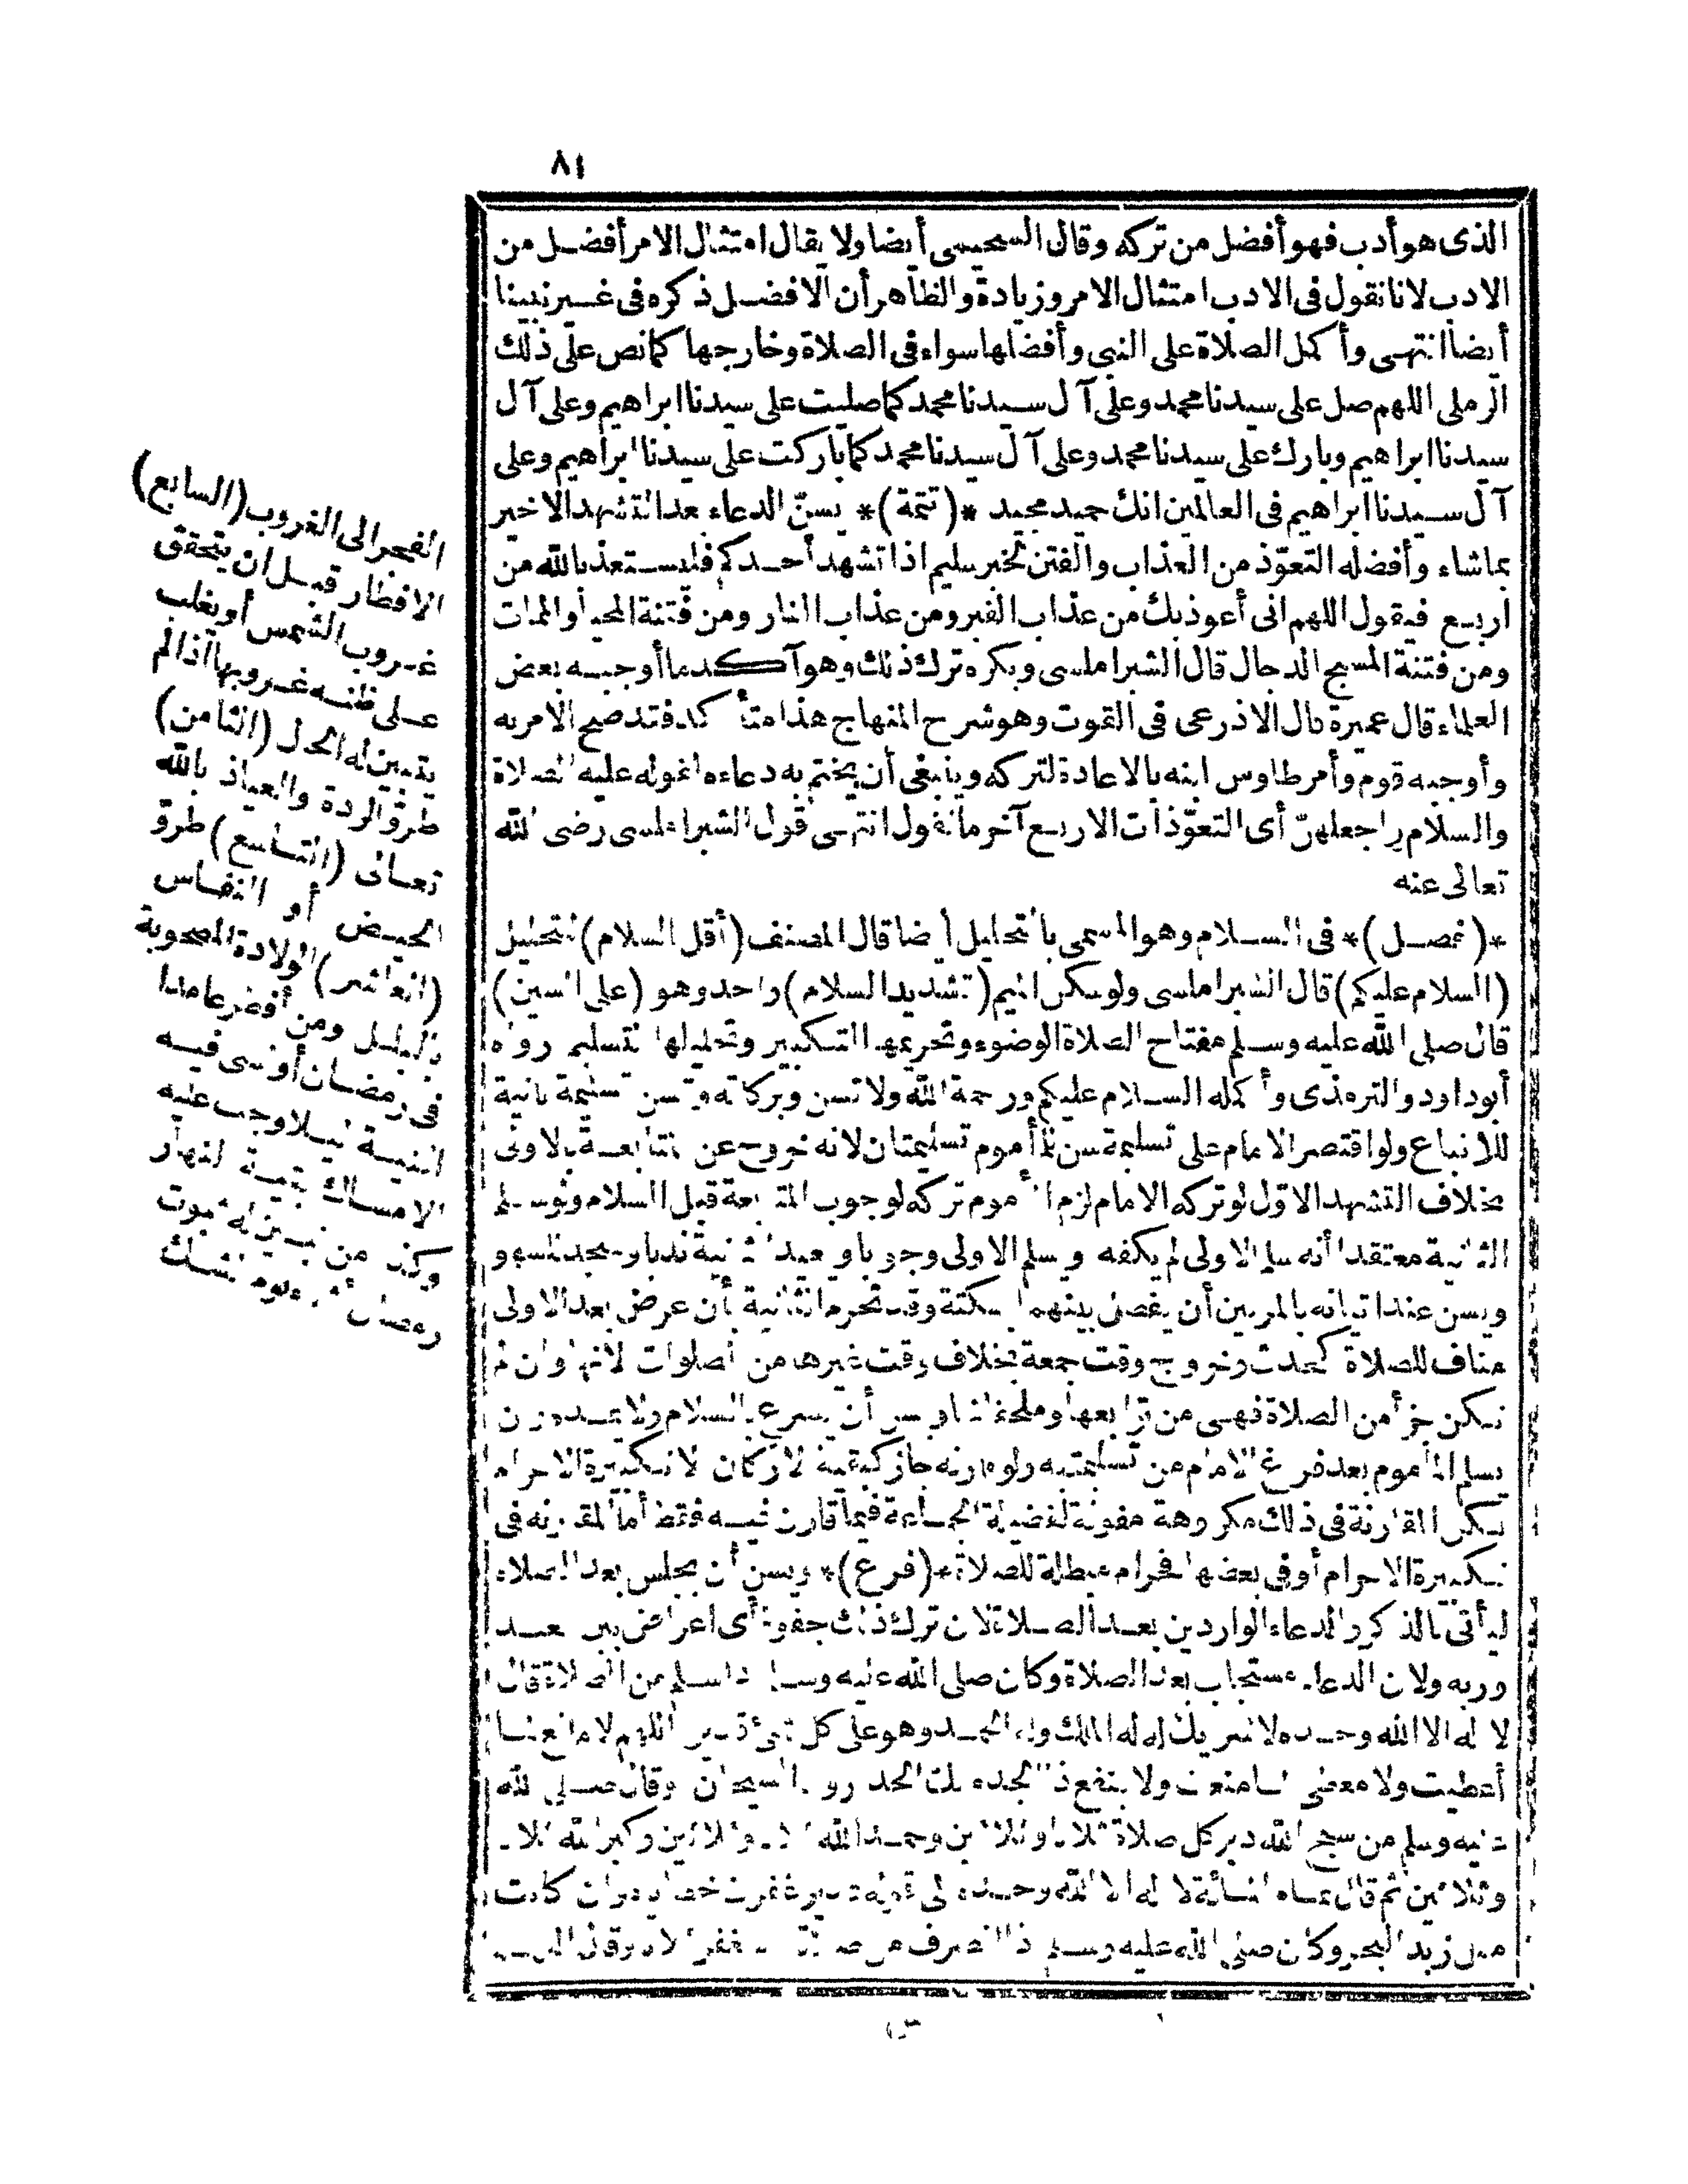 ٨١
الذى هو أدب فهو أفضل من تركه وقال السحيمى أيضا ولا يقال امتثال الامر أفضل من
الادب لانا نقول فى الادب امتثال الامر وزيادة والظاهر أن الافضل ذكره فى غير نبينا
أيضا انتهى وأكمل الصلاة على النبى وأفضلها سواء فى الصلاة وخارجها كما نص على ذلك
الرملى اللهم صل على سيدنا محمد وعلى آل سيدنا محمد كما صليت على سيدنا ابراهيم وعلى آل
سيدنا ابراهيم وبارك على سيدنا محمد وعلى آل سيدنا محمد كما باركت على سيدنا ابراهيم وعلى
آل سيدنا ابراهيم فى العالمين انك حميد مجيد *(تتمة)* يسنّ الدعاء بعد التشهد الاخير
بما شاء وأفضله التعوّذ من العذاب والفتن لخبر مسلم اذا تشهد أحدكم فليستعذ بالله من
اربع فيقول اللهم انى أعوذ بك من عذاب القبر ومن عذاب النار ومن فتنة المحيا والممات
ومن فتنة المسيح الدجال قال الشبراملسى ويكره ترك ذلك وهو آكد مما أوجبه بعض
العلماء قال عميرة قال الاذرعى فى القوت وهو شرح المنهاج هذا متأكد فقد صح الامر به
وأوجبه قوم وأمر طاوس ابنه بالاعادة لتركه وينبغى أن يختم به دعاءه لقوله عليه الصلاة
والسلام واجعلهنّ أى التعوّذات الاربع آخر ما تقول انتهى قول الشبراملسى رضى الله
تعالى عنه
*(فصل)* فى السلام وهو المسمى بالتحليل أيضا قال المصنف (أقل السلام) للتحليل
(السلام عليكم) قال الشبراملسى ولو سكن الميم (تشديد السلام) واحد وهو (على السين)
قال صلى الله عليه وسلم مفتاح الصلاة الوضوء وتحريمها التكبير وتحليلها التسليم رواه
أبو داود والترمذى وأكمله السلام عليكم ورحمة الله ولا تسن وبركاته وتسن تسليمة ثانية
للاتباع ولو اقتصر الامام على تسليمة سن للمأموم تسليمتان لانه خروج عن المتابعة بالاولى
بخلاف التشهد الاوّل لو تركه الامام لزم المأموم تركه لوجوب المتابعة قبل السلام ولو سلم
الثانية معتقدا أنه سلم الاولى لم يكفه ويسلم الاولى وجوبا ويعيد الثانية ندبا ويسجد للسهو
ويسن عند اتيانه بالمرتين أن يفصل بينهما بسكتة وقد تحرم الثانية بأن عرض بعد الاولى
مناف للصلاة كحدث وخروج وقت جمعة بخلاف وقت غيرها من الصلوات لانها وان لم
تكن جزأ من الصلاة فهى من توابعها وملحقاتها ويسن أن يسرع بالسلام ولا يمده وأن
يسلم المأموم بعد فراغ الامام من تسليمتيه ولو قارنه جاز كبقية الاركان لا تكبيرة الاحرام
لكن المقارنة فى ذلك مكروهة مفوتة لفضيلة الجماعة فيما قارن فيه فقط أما المقارنة فى
تكبيرة الاحرام أو فى بعضها فحرام مبطلة للصلاة *(فرع)* ويسن أن يجلس بعد الصلاة
ليأتى بالذكر والدعاء الواردين بعد الصلاة لان ترك ذلك جفوة أى اعراض بين العبد
وربه ولان الدعاء مستجاب بعد الصلاة وكان صلى الله عليه وسلم اذا سلم من الصلاة قال
لا اله الا الله وحده لا شريك له له الملك وله الحمد وهو على كل شئ قدير اللهم لا مانع لما
أعطيت ولا معطى لما منعت ولا ينفع ذا الجد منك الجد رواه الشيخان وقال صلى الله
عليه وسلم من سبح الله دبر كل صلاة ثلاثا وثلاثين وحمد الله ثلاثا وثلاثين وكبر الله ثلاثا
وثلاثين ثم قال تمام المائة لا اله الا الله وحده الى قوله قدير غفرت خطاياه وان كانت
مثل زبد البحر وكان صلى الله عليه وسلم اذا انصرف من صلاته استغفر الله ثلاثا وقال اللهم
الفجر الى الغروب (السابع)
الافطار قبل ان يتحقق
غروب الشمس أو يغلب
على ظنه غروبها اذا لم
يتبين له الحال (الثامن)
طروّ الردة والعياذ بالله
تعالى (التاسع) طروّ
الحيض أو النفاس
(العاشر) الولادة المصحوبة
بالبلل ومن أفطر عامدا
فى رمضان أو نسى فيه
النية ليلا وجب عليه
الامساك بقية النهار
وكذا من تبين له ثبوت
رمضان يوم الشك